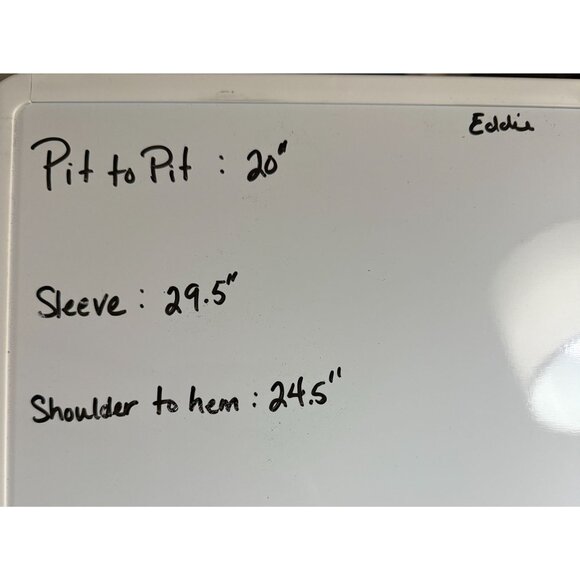 Eddie
Pit to Pit : 20"
Sleeve : 29.5"
Shoulder to hem : 24.5"